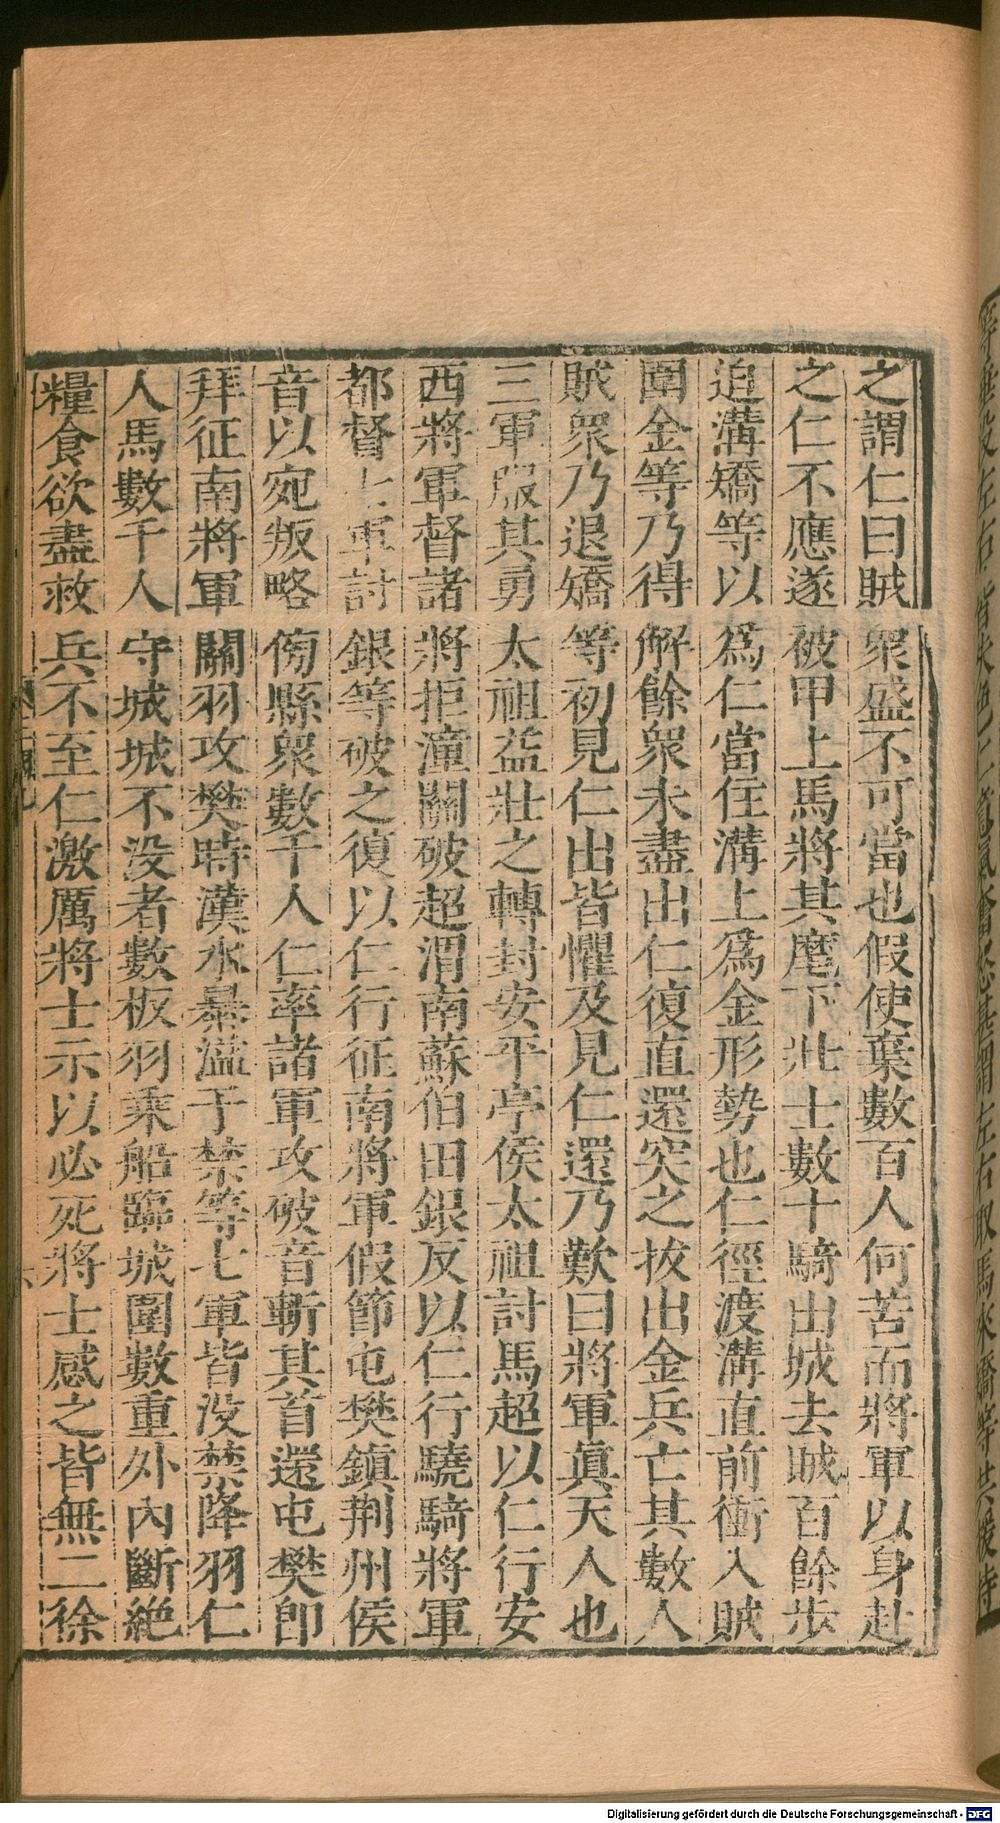 之謂仁曰賊衆盛不可當也假使棄數百人何苦而將軍以身赴
之仁不應遂被甲上馬將其麾下壯士數十騎出城去賊百餘步
迫溝矯等以爲仁當住溝上爲金形勢也仁徑渡溝直前衝入賊
圍金等乃得解餘衆未盡出仁復直還突之拔出金兵亡其數人
賊衆乃退矯等初見仁出皆懼及見仁還乃歎曰將軍眞天人也
三軍服其勇太祖益壯之轉封安平亭侯太祖討馬超以仁行安
西將軍督諸將拒潼關破超渭南蘇伯田銀反以仁行驍騎將軍
都督七軍討銀等破之復以仁行征南將軍假節屯樊鎮荆州侯
音以宛叛略傍縣衆數千人仁率諸軍攻破音斬其首還屯樊卽
拜征南將軍關羽攻樊時漢水暴溢于禁等七軍皆没禁降羽仁
人馬數千人守城城不没者數板羽乘船臨城圍數重外內斷絶
糧食欲盡救兵不至仁激厲將士示以必死將士感之皆無二徐
Digitalisierung gefördert durch die Deutsche Forschungsgemeinschaft - DFG